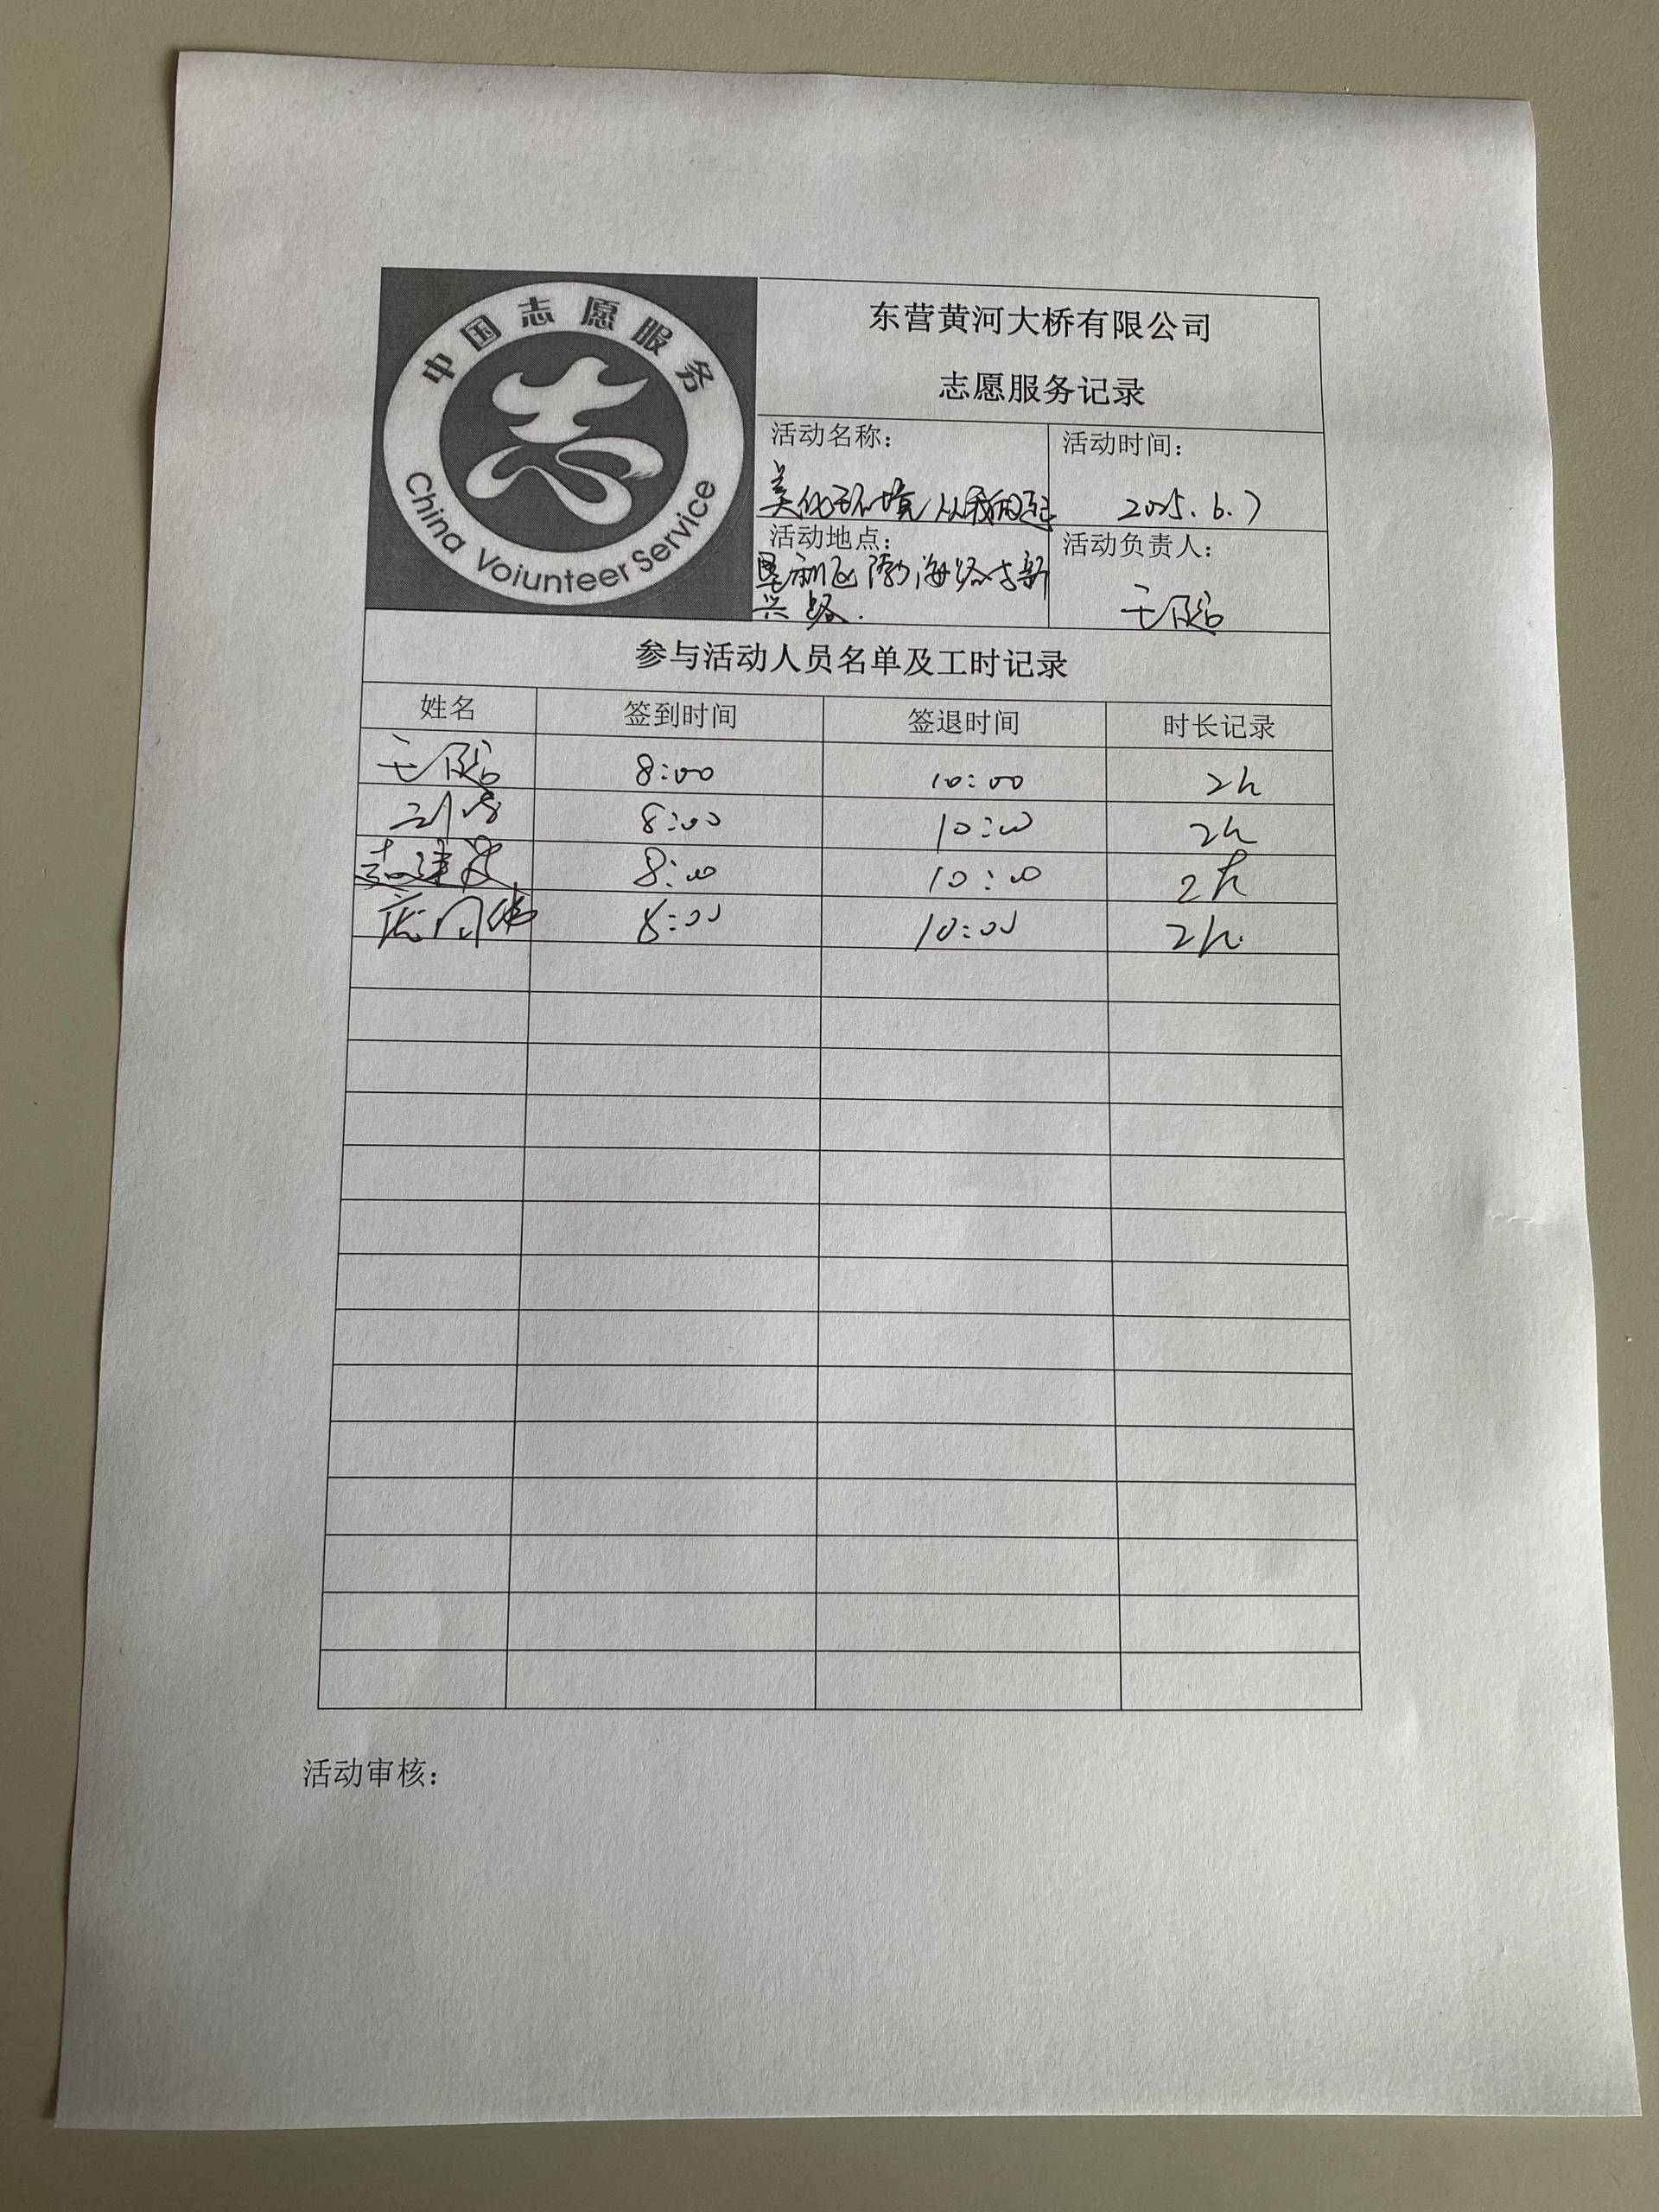 中国志愿服务
China Voiunteer Service
东营黄河大桥有限公司
志愿服务记录
活动名称：
美化环境 从我做起
活动时间：
2025.6.7
活动地点：
垦利区渤海路与新
兴路.
活动负责人：
王
参与活动人员名单及工时记录
姓名 签到时间 签退时间 时长记录
王 8:00 10:00 2h
刘 8:00 10:00 2h
8:00 10:00 2h
8:00 10:00 2h.
活动审核：